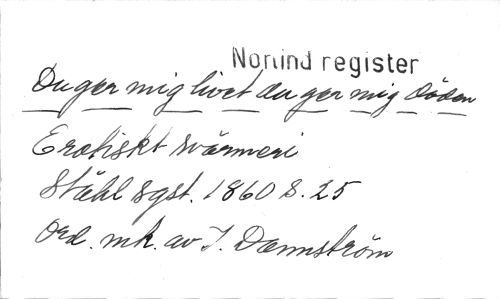 Norlind register
Du ger mig livet du ger mig döden
Erotiskt svärmeri
Ståhl sgst. 1860 S. 25
Ord. mk. av I. Dannström